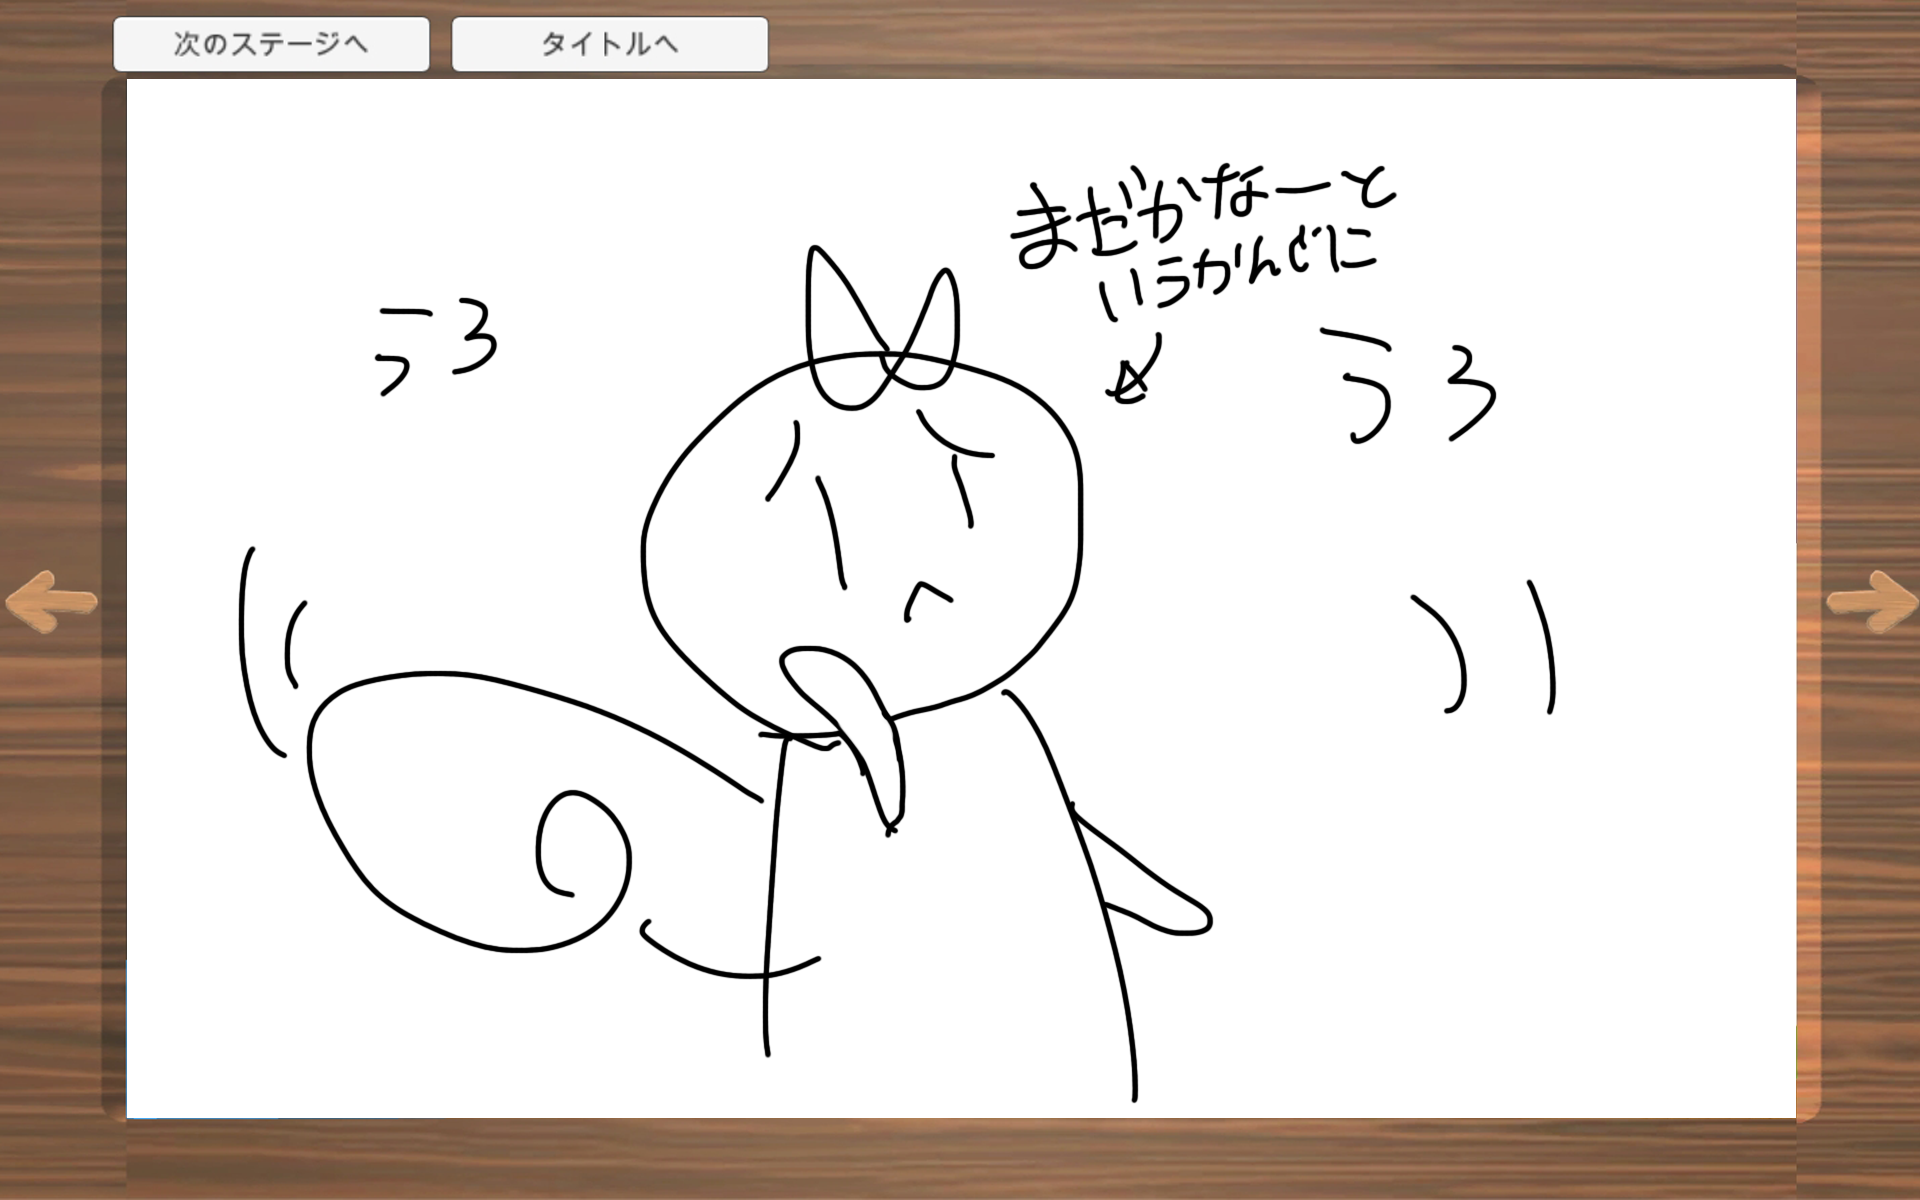 次のステージへ
タイトルへ
まだかなーと
いうかんじに
うろ
うろ